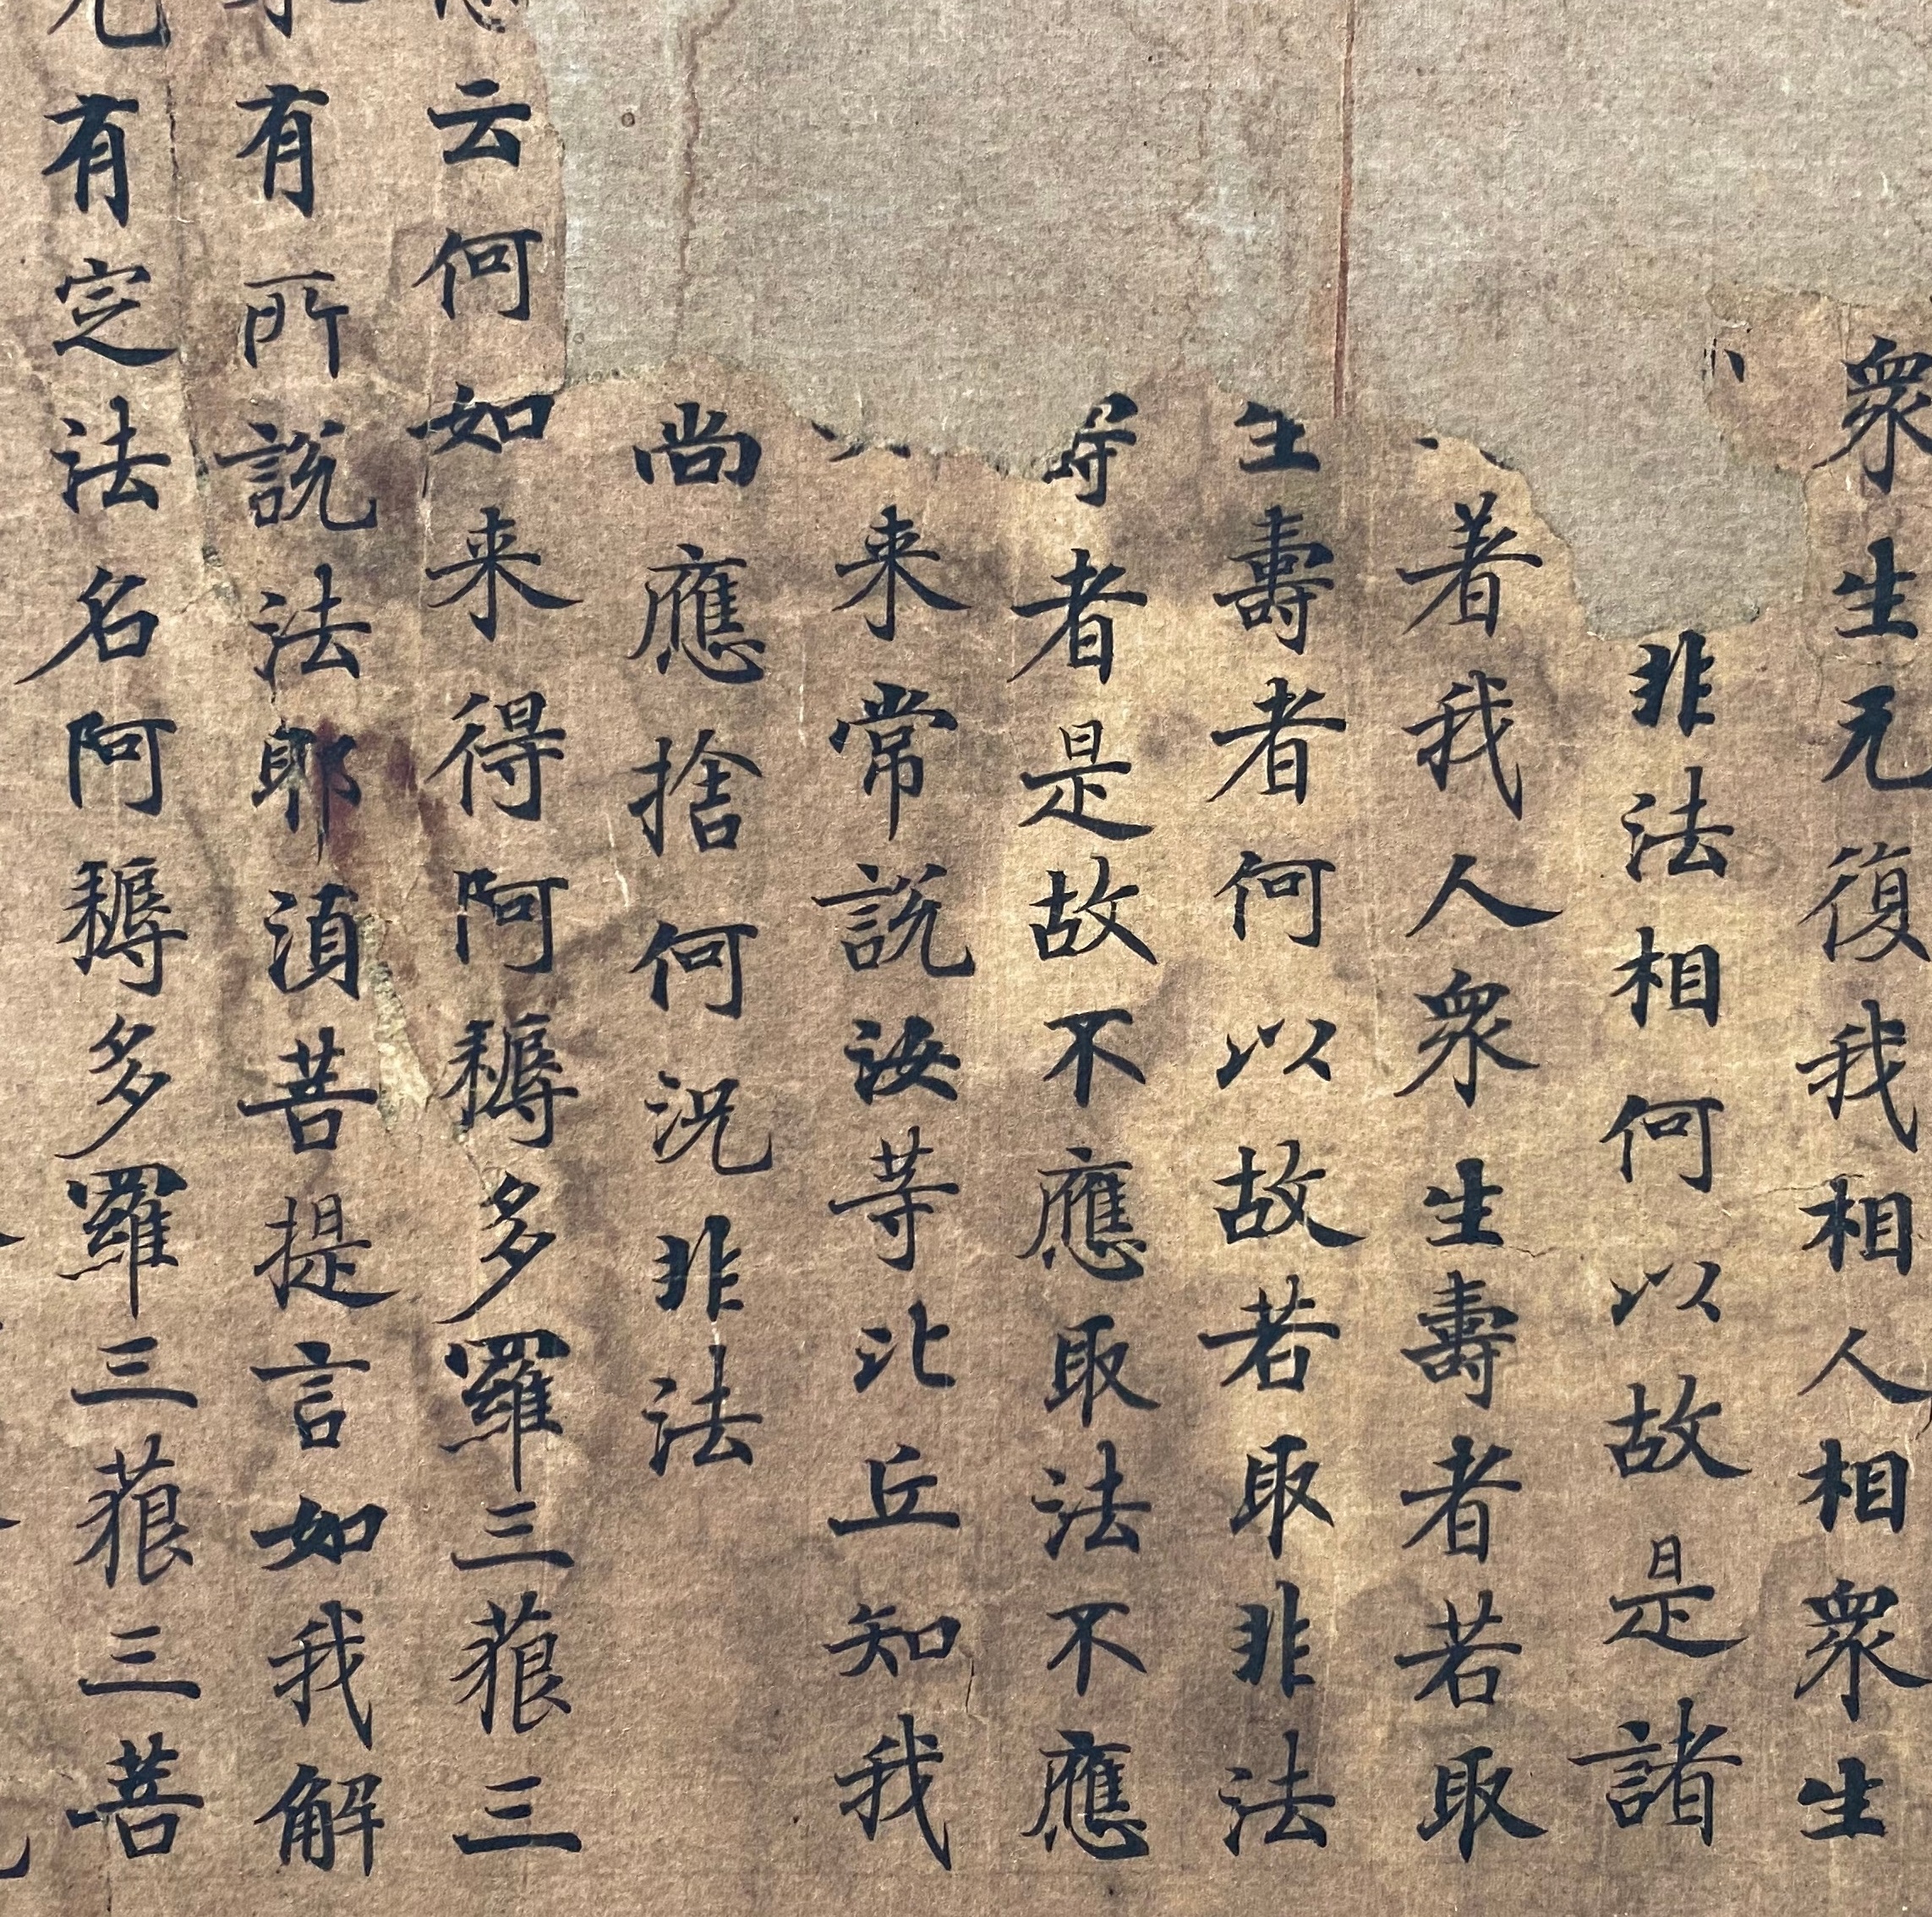 衆生无復我相人相衆生
非法相何以故是諸
著我人衆生壽者若取
生壽者何以故若取非法
壽者是故不應取法不應
来常說汝等比丘知我
尚應捨何況非法
云何如来得阿耨多羅三藐三
有所說法耶湏菩提言如我解
有定法名阿耨多羅三藐三菩